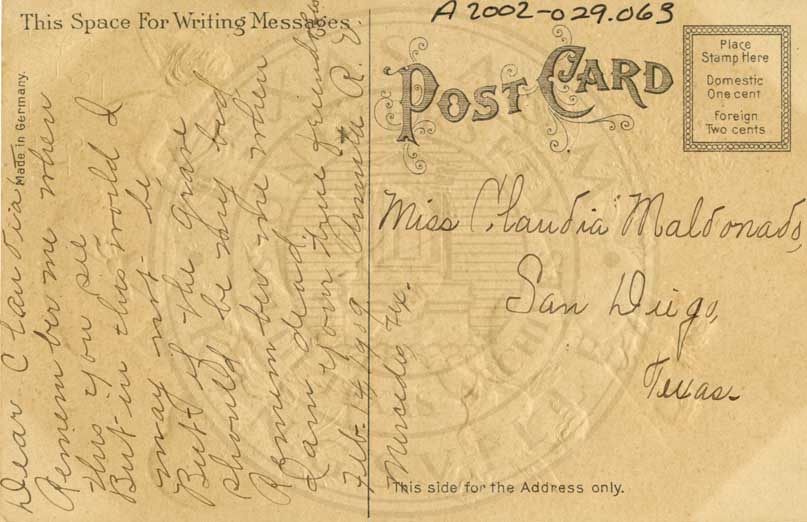 A2002-029.063
This Space For Writing Messages
Made in Germany.
POST CARD
Place
Stamp Here
Domestic
One cent
Foreign
Two cents
Dear Claudia
Remember me when
this you see
But in this world I
may not be
But if the grave
should be my bed
Remember me when
I am dead.
your true friend
R. V.
Feb. 14 1909
Mercedes Tex.
Miss Claudia Maldonado,
San Diego,
Texas.
This side for the Address only.